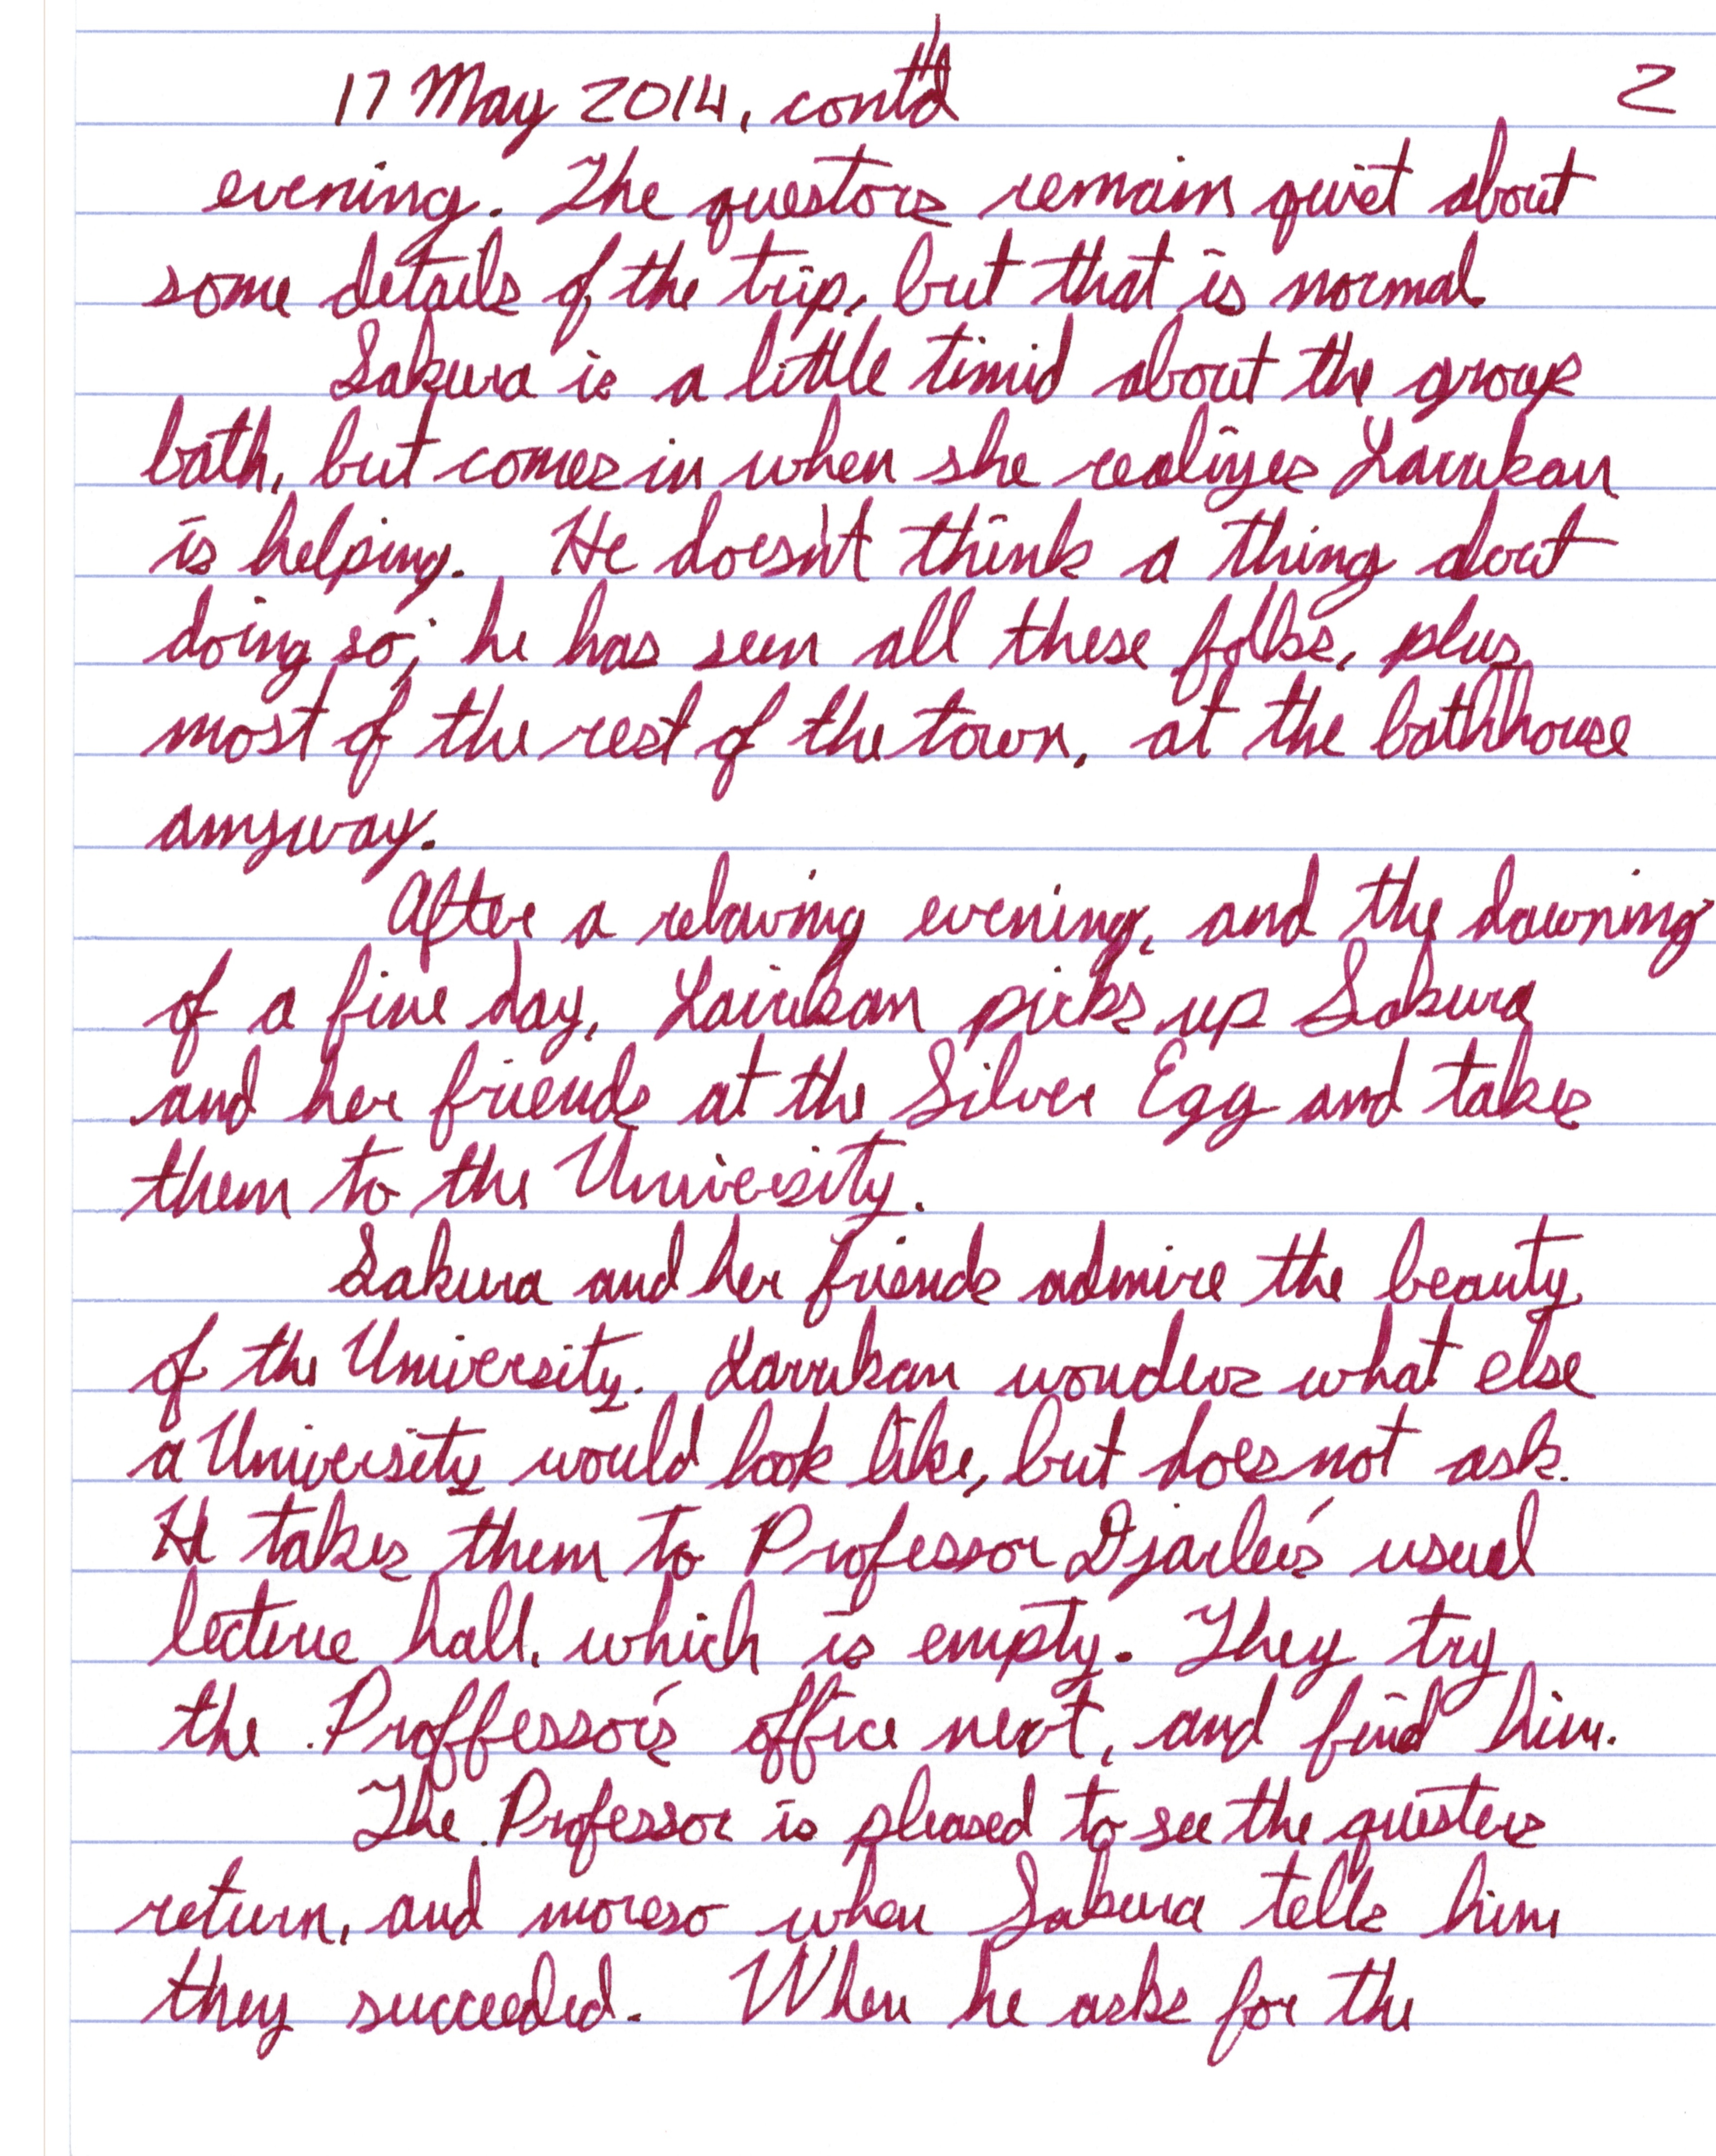 17 May 2014, cont'd 2
evening. The questors remain quiet about
some details of the trip, but that is normal.
Sakura is a little timid about the group
bath, but comes in when she realizes Larrikan
is helping. He doesn't think a thing about
doing so; he has seen all these folks, plus
most of the rest of the town, at the bathhouse
anyway.
After a relaxing evening, and the dawning
of a fine day, Larrikan picks up Sakura
and her friends at the Silver Egg and takes
them to the University.
Sakura and her friends admire the beauty
of the University. Larrikan wonders what else
a University would look like, but does not ask.
He takes them to Professor Djarlee's usual
lecture hall, which is empty. They try
the Proffessor's office next, and find him.
The Professor is pleased to see the questers
return, and moreso when Sakura tells him
they succeeded. When he asks for the